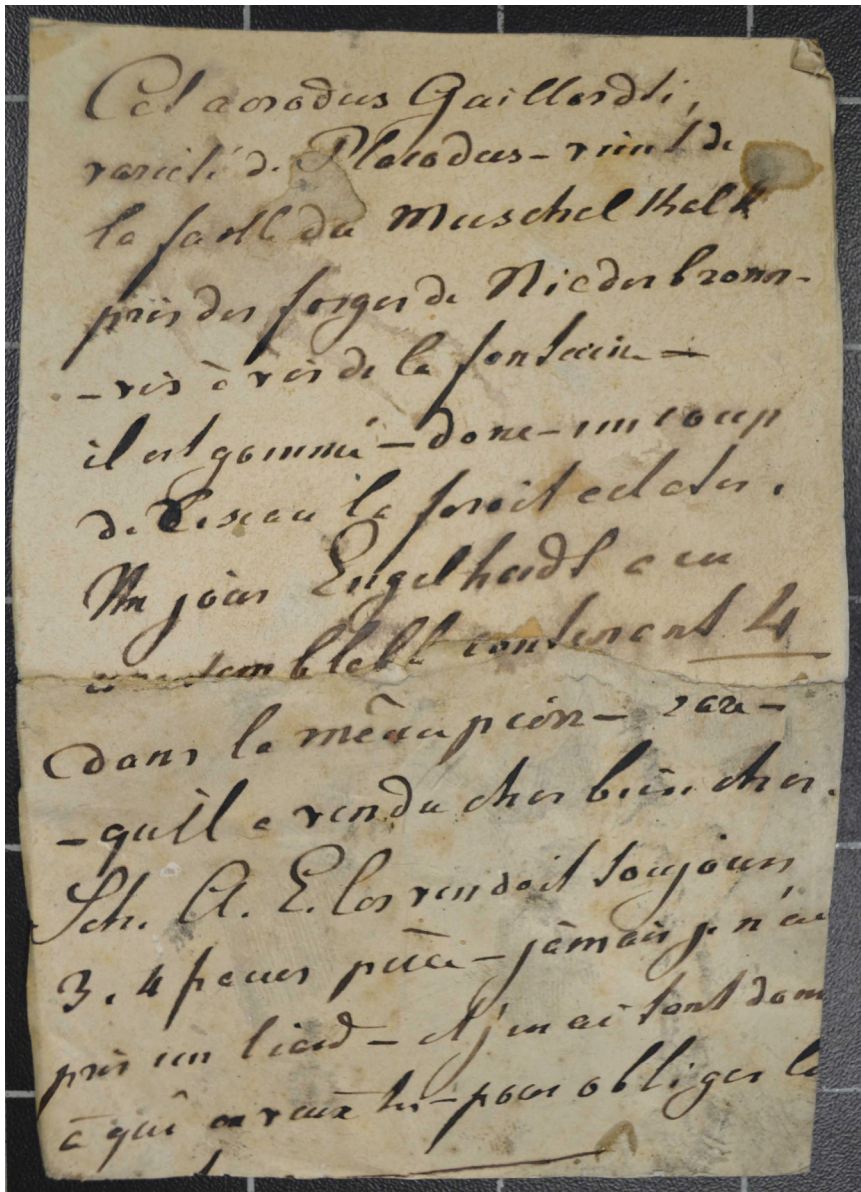 Cet acrodus Gaillardti,
varieté de Placodus - vient de
la faille du Muschel Kalk
près des forges de Niederbronn -
- vis à vis de la fontaine -
il est gommé - donc - un coup
de ciseau le feroit eclater.
Un jour Engelhardt a eu
semblable contenant 4
dans la même pierre - rare -
- qu'il a vendu cher bien cher.
Sch. A. E. les vendoit toujours
3. 4 francs pièce - jamais je n'ai
pris un liard - et j'en ai tant donn
à qui en veux tu - pour obliger le